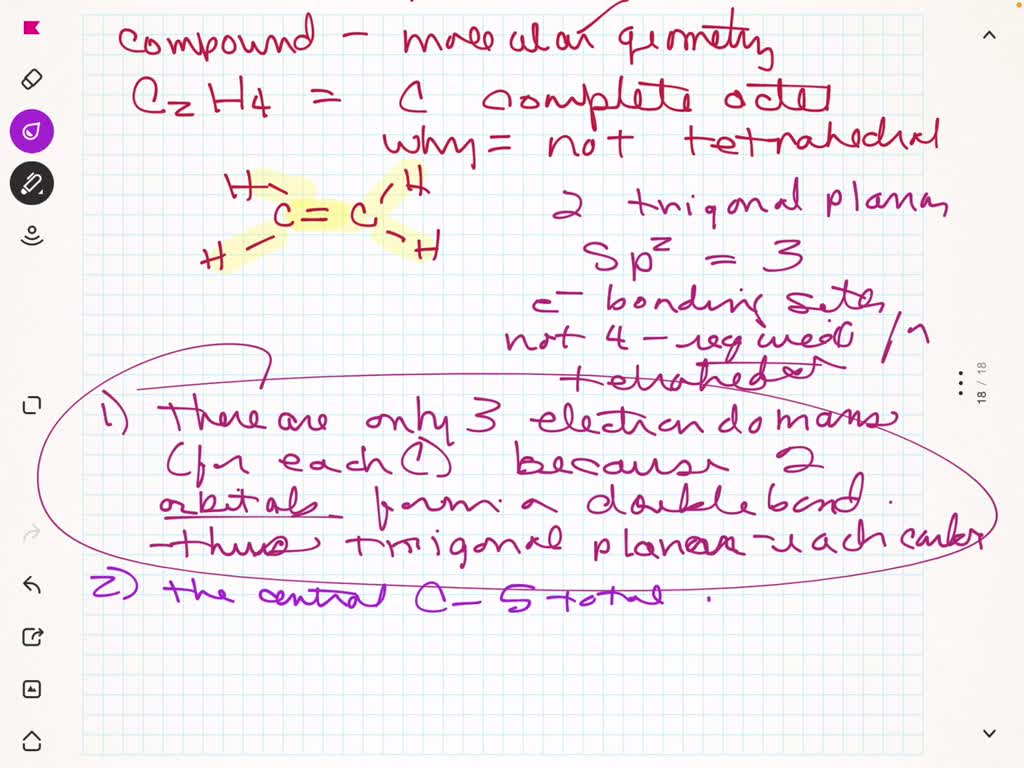 compound - molecular geometry
C2H4 = C complete octet
why = not tetrahedral
H H
C = C
H H
2 trigonal planar
Sp² = 3
e⁻ bonding sites
not 4 - required
tetrahedral
18 / 18
1) There are only 3 electron domains
(for each C) because 2
orbitals form a double bond.
- thus trigonal planar - each carbon
2) the central C - 5 total .